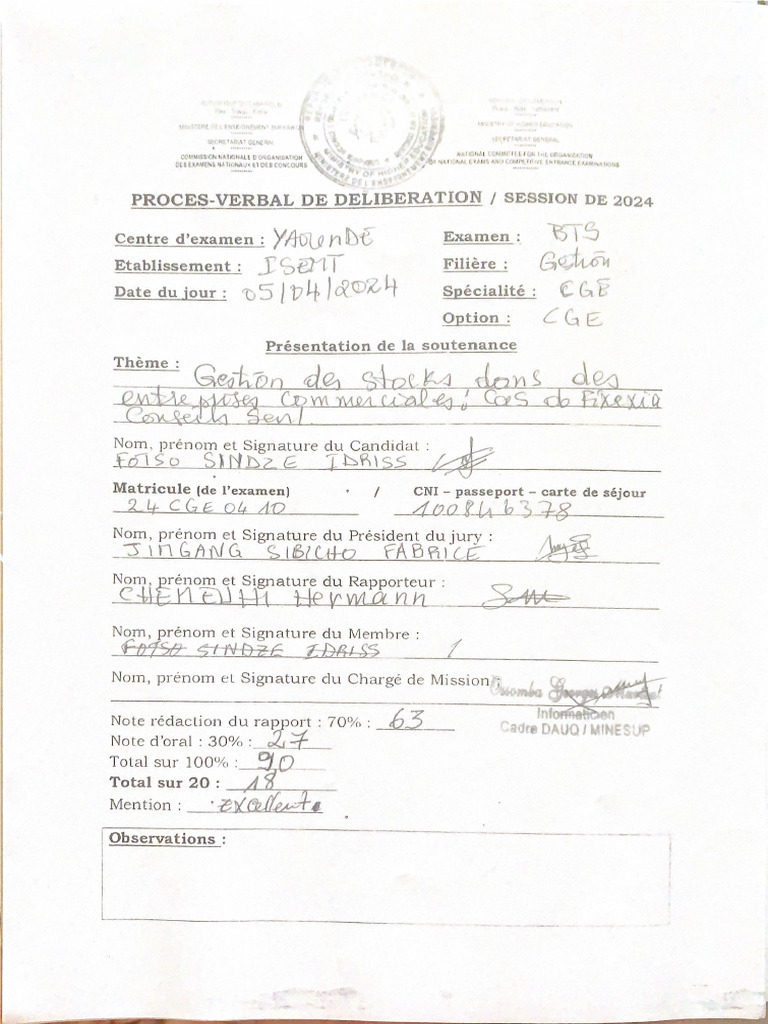 MINISTERE DE L'ENSEIGNEMENT SUPERIEUR
MINISTRY OF HIGHER EDUCATION
SECRETARIAT GENERAL
SECRETARIAT GENERAL
COMMISSION NATIONALE D'ORGANISATION
DES EXAMENS NATIONAUX ET DES CONCOURS
NATIONAL COMMITTEE FOR THE ORGANIZATION
OF NATIONAL EXAMS AND COMPETITIVE ENTRANCE EXAMINATIONS
PROCES-VERBAL DE DELIBERATION / SESSION DE 2024
Centre d'examen : YAOUNDÉ Examen : BTS
Etablissement : ISEMT Filière : Gestion
Date du jour : 05/04/2024 Spécialité : CGE
Option : CGE
Présentation de la soutenance
Thème :
Gestion des stocks dans des
entreprises commerciales : Cas de Fixexia
Conseils Senl
Nom, prénom et Signature du Candidat :
FOTSO SINDZE IDRISS
Matricule (de l'examen) / CNI – passeport – carte de séjour
24 CGE 04 10 100846378
Nom, prénom et Signature du Président du jury :
JINGANG SIBICHO FABRICE
Nom, prénom et Signature du Rapporteur :
Hermann
Nom, prénom et Signature du Membre :
FOTSO SINDZE IDRISS
Nom, prénom et Signature du Chargé de Mission :
Informaticien
Cadre DAUQ / MINESUP
Note rédaction du rapport : 70% : 63
Note d'oral : 30% : 27
Total sur 100% : 90
Total sur 20 : 18
Mention : Excellent
Observations :